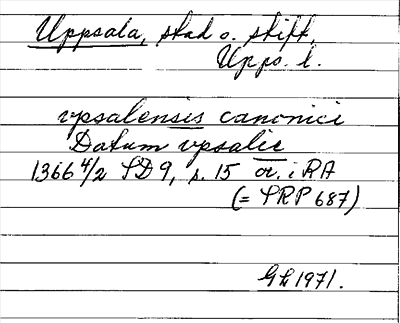 Uppsala, stad o. stift,
Upps. l.
vpsalensis canonici
Datum vpsalie
1366 4/2 SD 9, s. 15 or. i RA
(= SRP 687)
GL 1971.